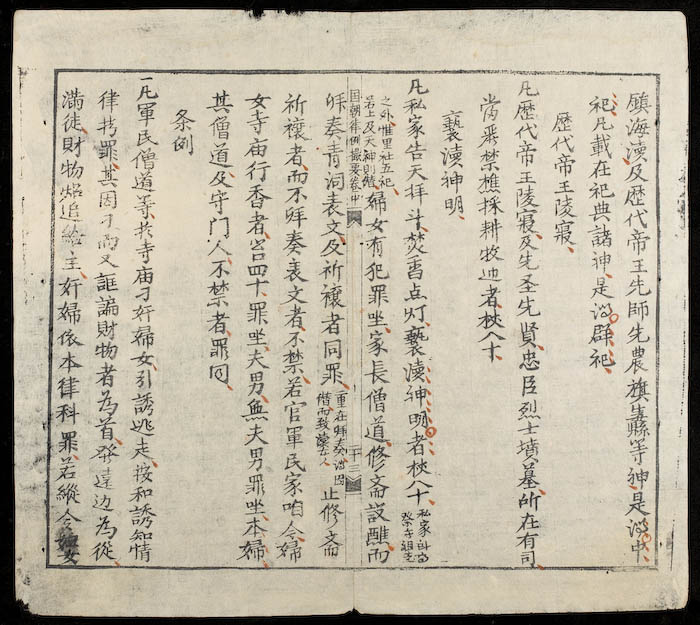 鎮海瀆及歷代帝王先師先農旗纛等神是为中
祀凡載在祀典諸神是为群祀
歷代帝王陵寢
凡歷代帝王陵寢及先圣先賢忠臣烈士墳墓所在有司
当严禁樵採耕牧违者杖八十
褻瀆神明
凡私家告天拜斗焚香点灯褻瀆神明者杖八十
私家
祖先
之外惟里社五祀
若上及天神則僭
婦女有犯罪坐家長僧道修斋設醮而
国朝律例撮要卷中
二十三
拜奏青词表文及祈禳者同罪
重在拜奏
僭而致瀆
止修斋
祈禳者而不拜奏表文者不禁若官軍民家咱令婦
女寺庙行香者笞四十罪坐夫男無夫男罪坐本婦
其僧道及守门人不禁者罪同
条例
一凡軍民僧道等扵寺庙刁奸婦女引誘逃走按和誘知情
律拷罪其因刁而又誆騙財物者為首發遠边為從
滿徒財物照追給主奸婦依本律科罪若縱令婦女